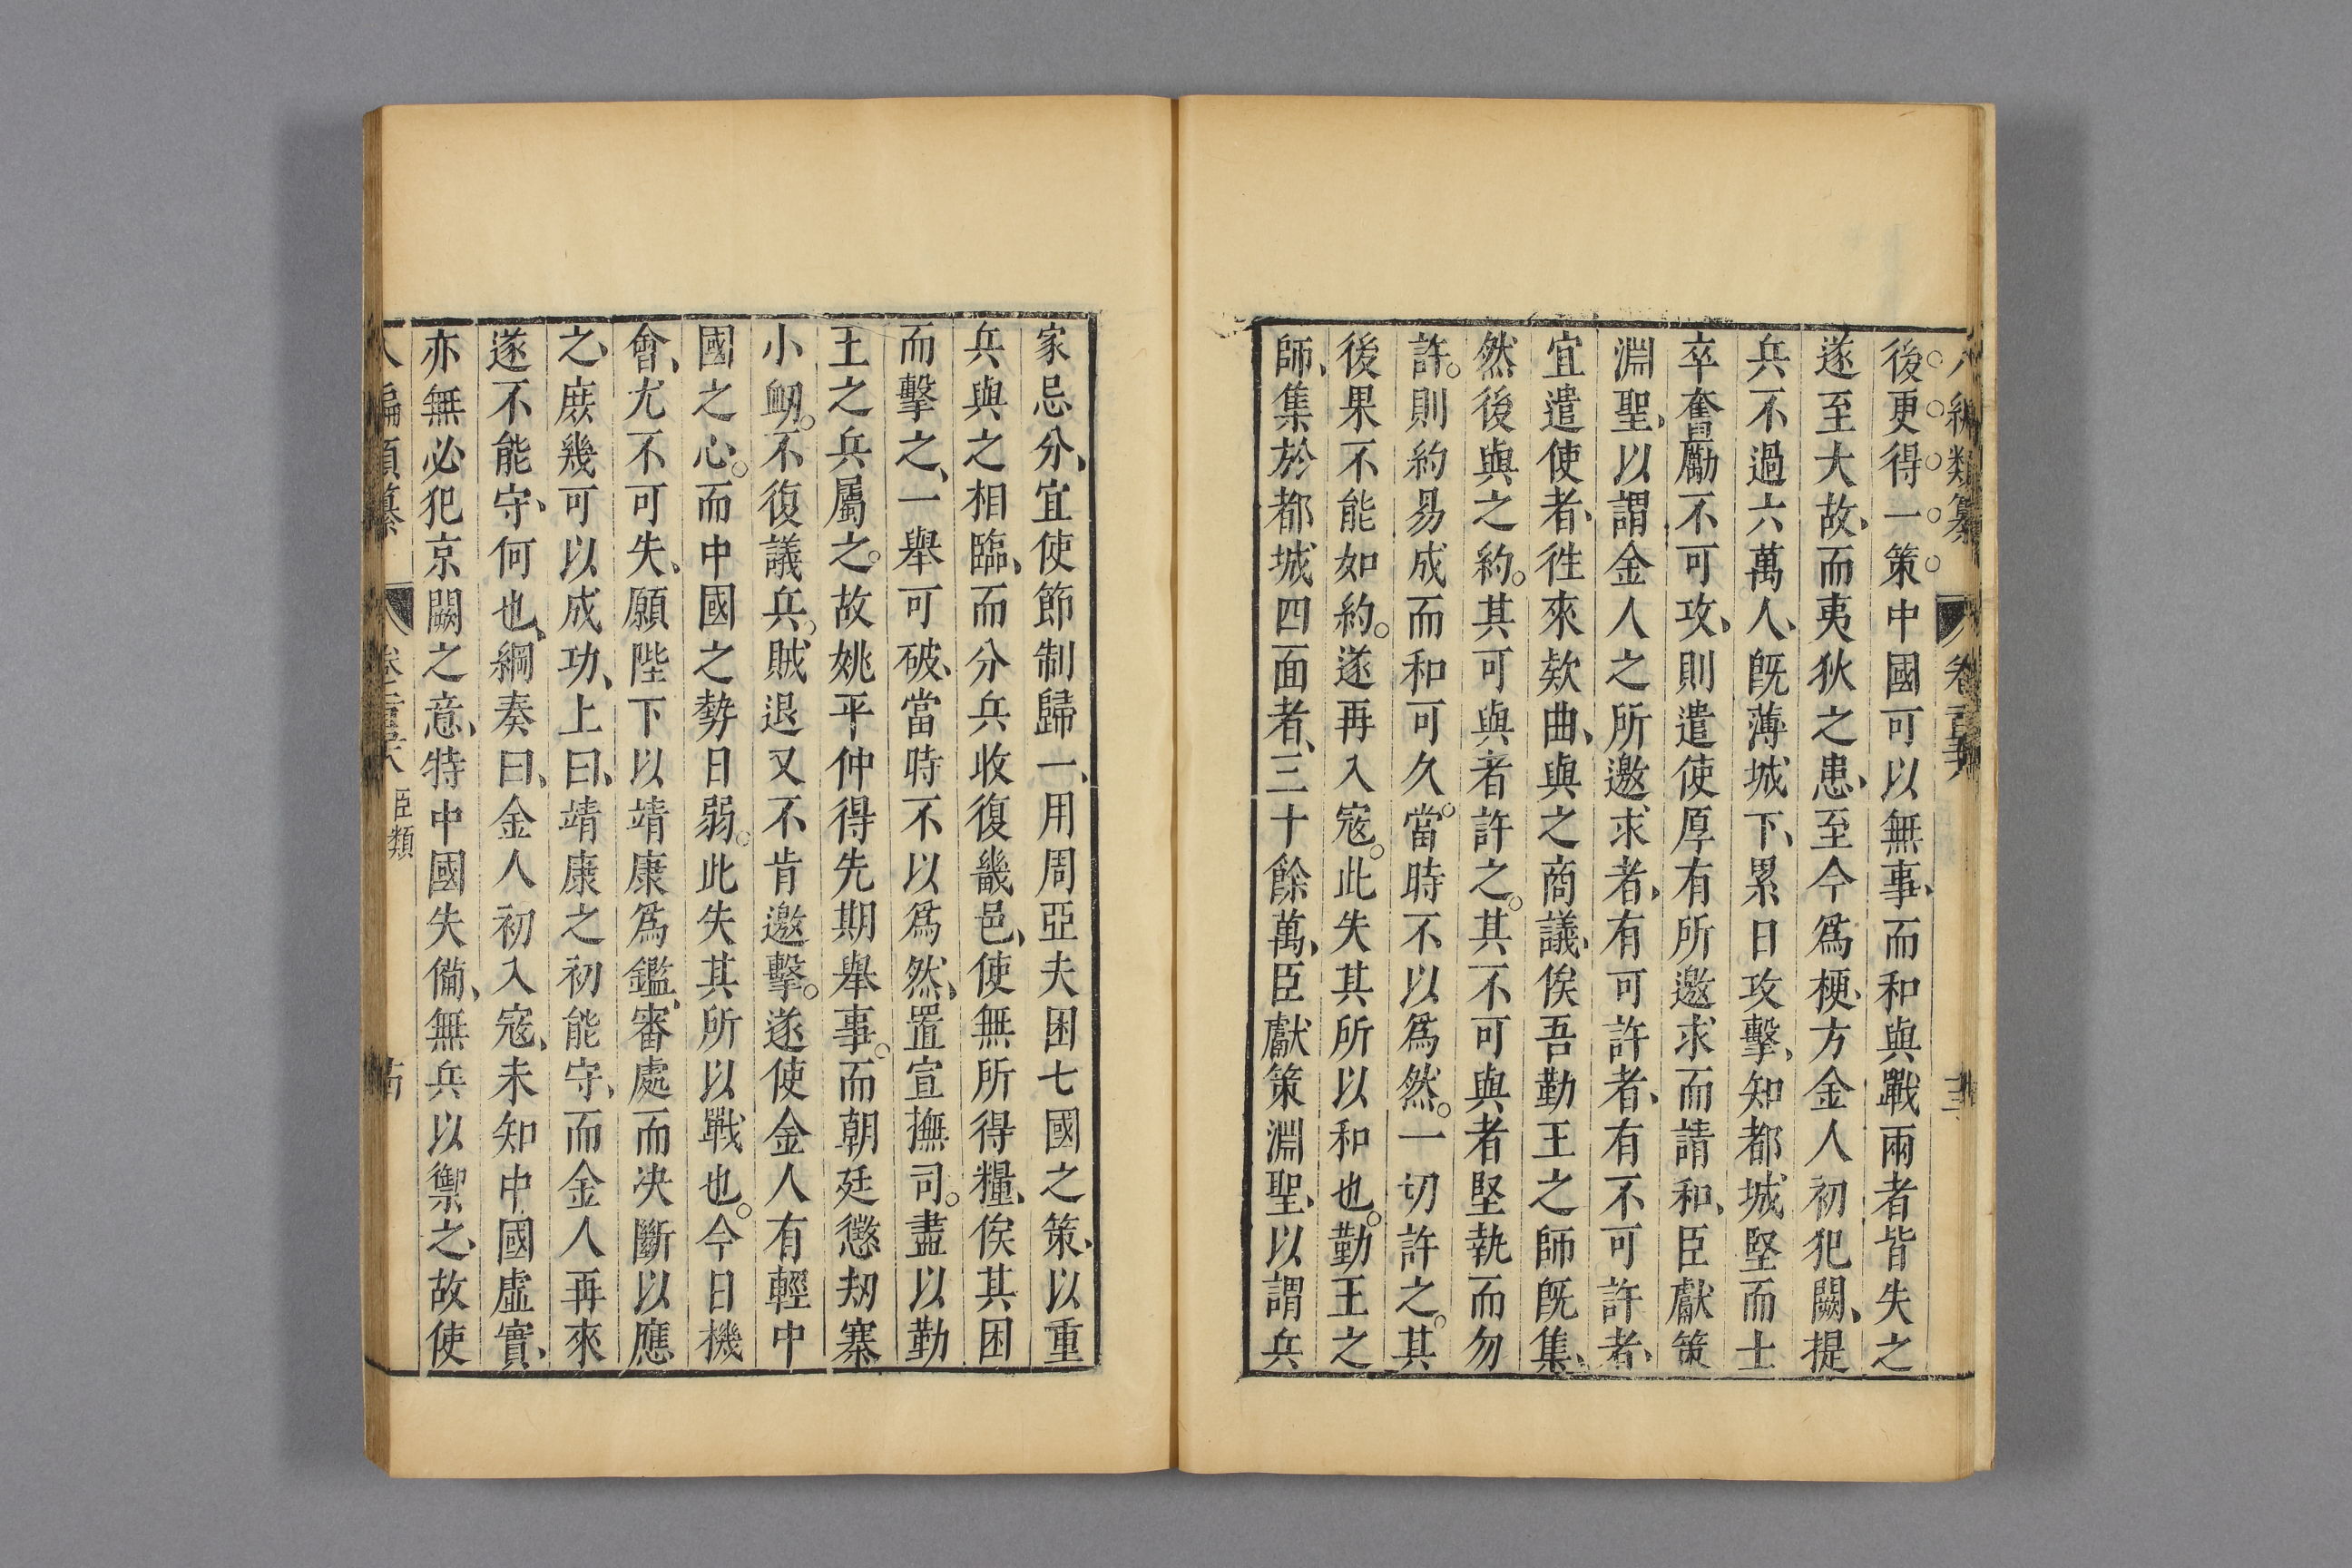 後更得一策中國可以無事而和與戰兩者皆失之
遂至大故而夷狄之患至今爲梗方金人初犯闕提
兵不過六萬人既薄城下累日攻擊知都城堅而士
卒奮勵不可攻則遣使厚有所邀求而請和臣獻策
淵聖以謂金人之所邀求者有可許者有不可許者
宜遣使者徃來欵曲與之商議俟吾勤王之師既集
然後與之約其可與者許之其不可與者堅執而勿
許則約易成而和可久當時不以爲然一切許之其
後果不能如約遂再入寇此失其所以和也勤王之
師集於都城四面者三十餘萬臣獻策淵聖以謂兵
家忌分宜使節制歸一用周亞夫困七國之策以重
兵與之相臨而分兵收復畿邑使無所得糧俟其困
而擊之一舉可破當時不以爲然置宣撫司盡以勤
王之兵屬之故姚平仲得先期舉事而朝廷懲刼寨
小衂不復議兵賊退又不肯邀擊遂使金人有輕中
國之心而中國之勢日弱此失其所以戰也今日機
會尤不可失願陛下以靖康爲鑑審處而决斷以應
之庶幾可以成功上曰靖康之初能守而金人再來
遂不能守何也綱奏曰金人初入寇未知中國虛實
亦無必犯京闕之意特中國失備無兵以禦之故使
臣類